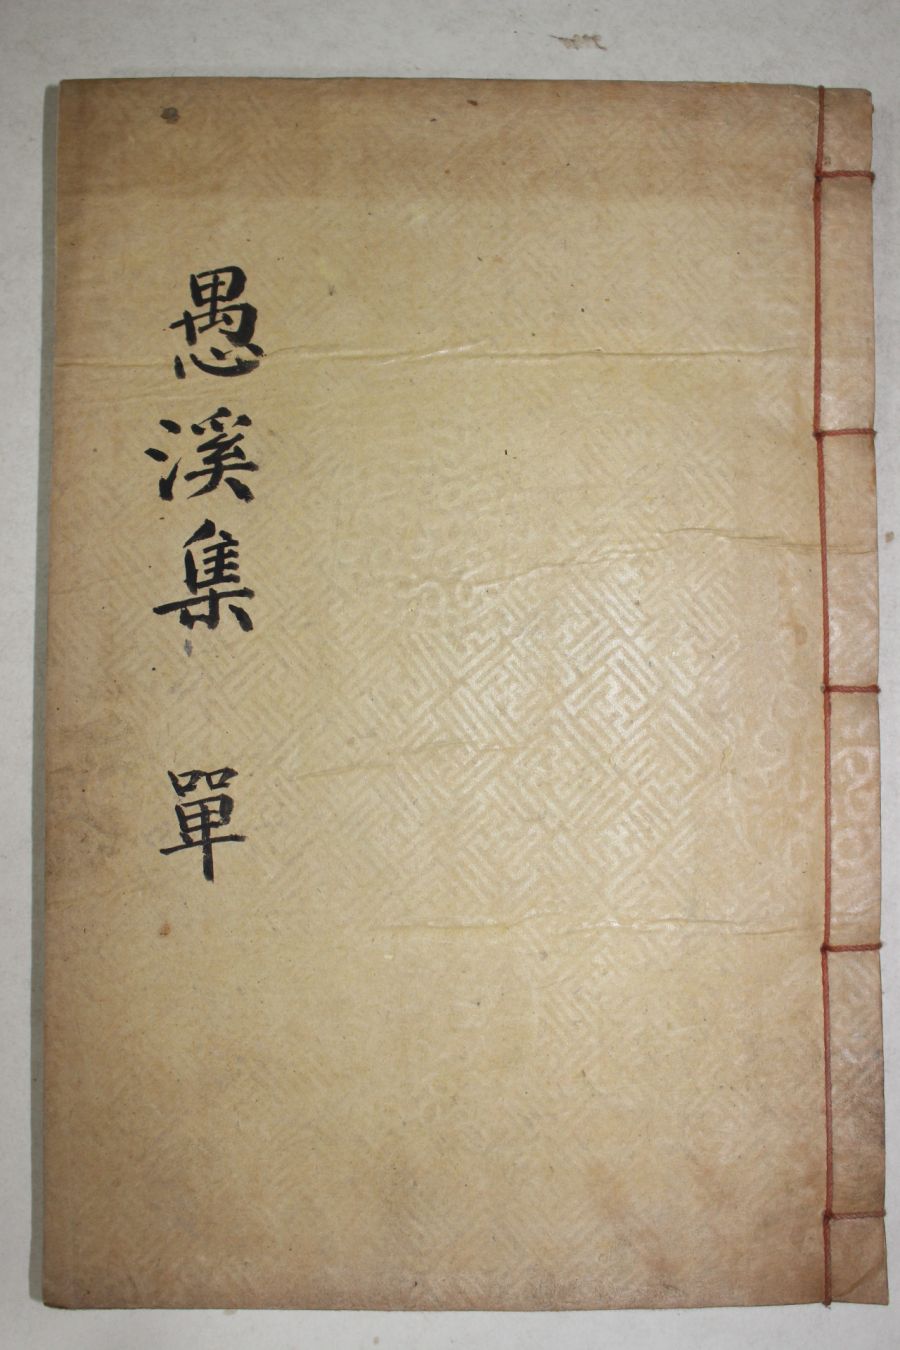 愚溪集 單